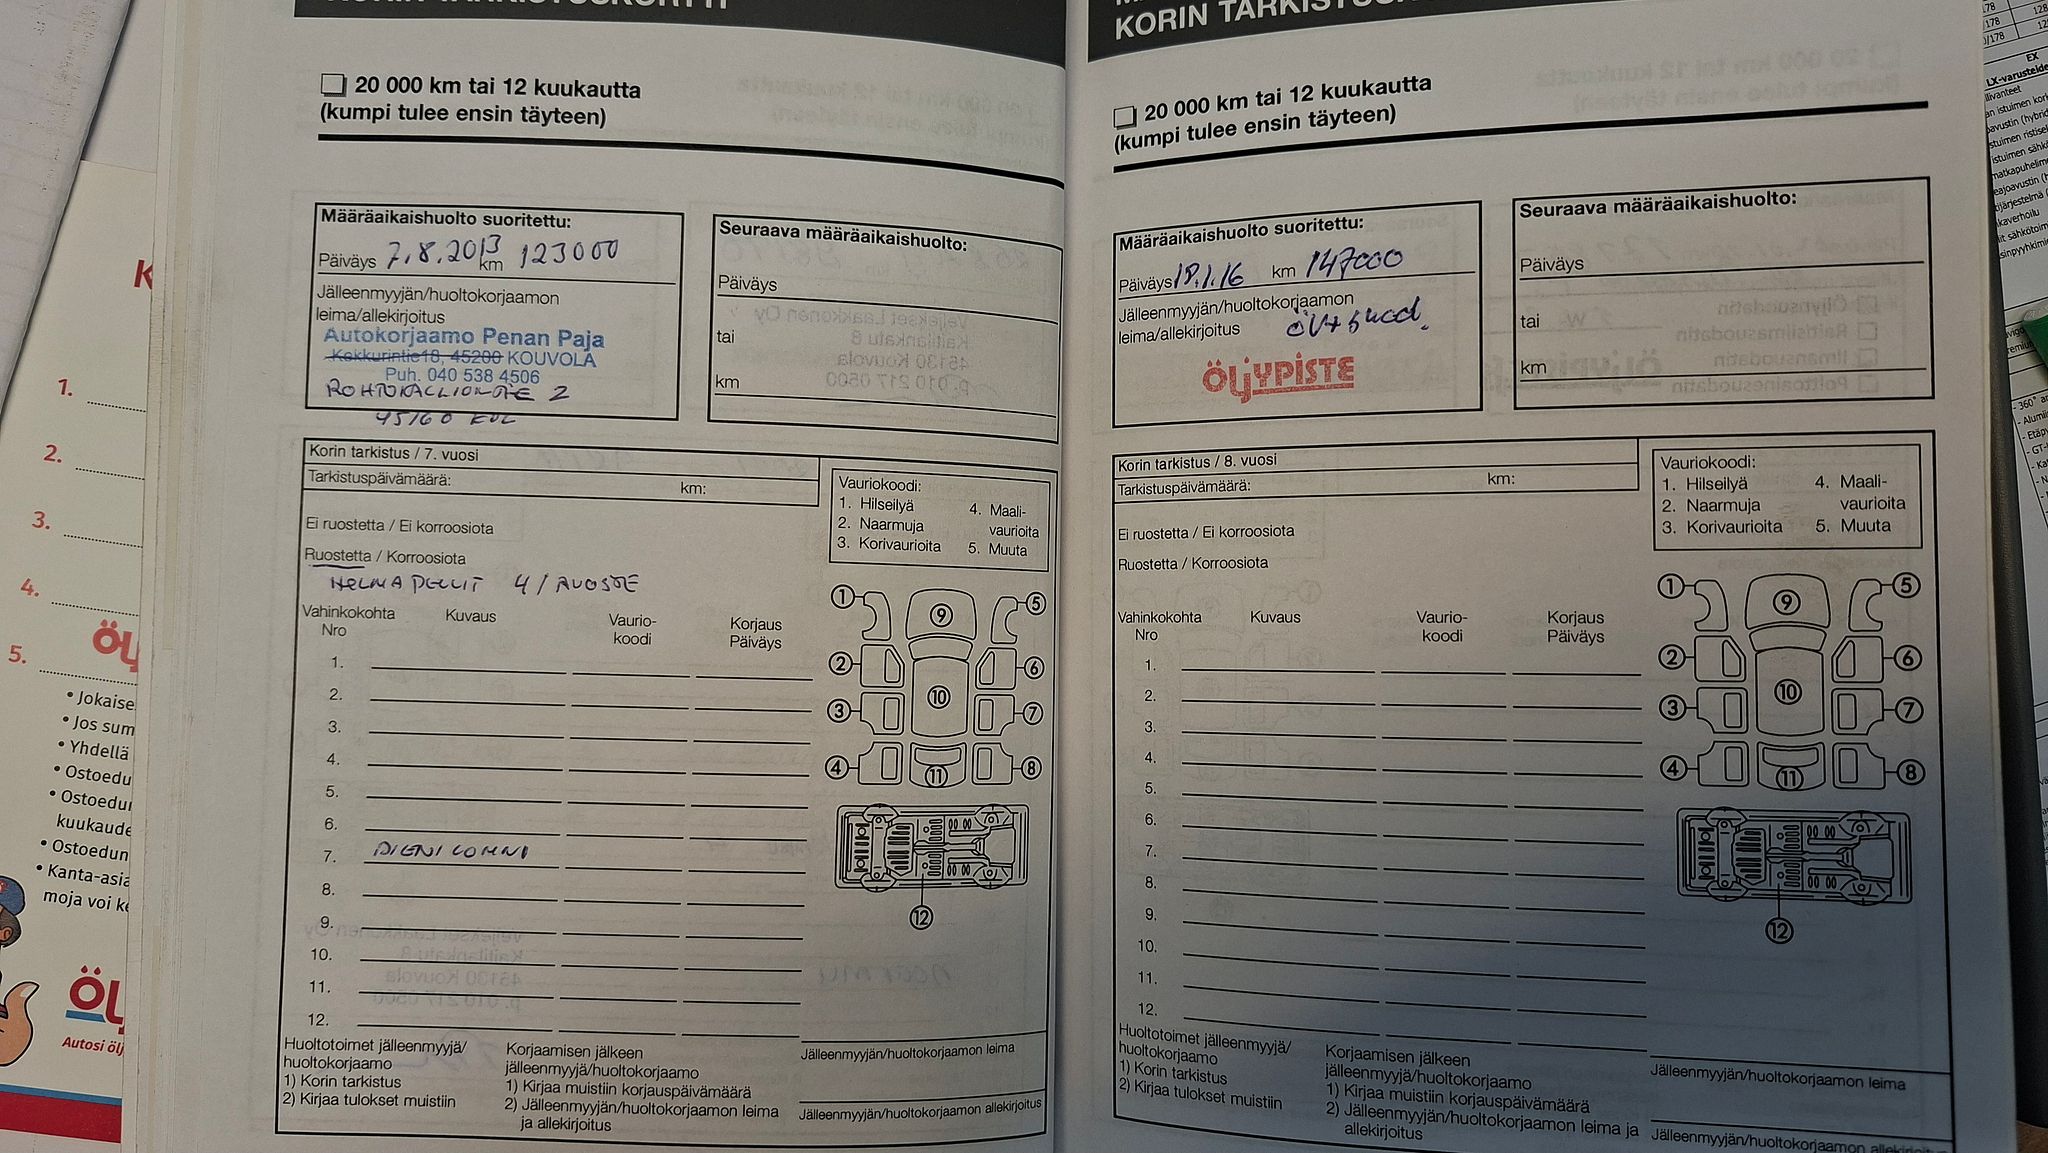 KORIN TARKISTUSKORTTI
20 000 km tai 12 kuukautta
(kumpi tulee ensin täyteen)
Määräaikaishuolto suoritettu:
Päiväys 7.8.2013 km 123000
Jälleenmyyjän/huoltokorjaamon
leima/allekirjoitus
Autokorjaamo Penan Paja
Kekkurintie18, 45200 KOUVOLA
Puh. 040 538 4506
ROHTOKALLIONTIE 2
45160 KVL
Seuraava määräaikaishuolto:
Päiväys
tai
km
Korin tarkistus / 7. vuosi
Tarkistuspäivämäärä: km:
Ei ruostetta / Ei korroosiota
Ruostetta / Korroosiota
HELMAPELLIT 4 / RUOSTE
Vauriokoodi:
1. Hilseilyä
2. Naarmuja
3. Korivaurioita
4. Maali-
vaurioita
5. Muuta
Vahinkokohta Kuvaus Vaurio- Korjaus
Nro koodi Päiväys
1.
2.
3.
4.
5.
6.
7. PIENI LOMMO
8.
9.
10.
11.
12.
1
2
3
4
5
6
7
8
9
10
11
12
Huoltotoimet jälleenmyyjä/
huoltokorjaamo
1) Korin tarkistus
2) Kirjaa tulokset muistiin
Korjaamisen jälkeen
jälleenmyyjä/huoltokorjaamo
1) Kirjaa muistiin korjauspäivämäärä
2) Jälleenmyyjän/huoltokorjaamon leima
ja allekirjoitus
Jälleenmyyjän/huoltokorjaamon leima
Jälleenmyyjän/huoltokorjaamon allekirjoitus
KORIN TARKISTUSK
20 000 km tai 12 kuukautta
(kumpi tulee ensin täyteen)
Määräaikaishuolto suoritettu:
Päiväys 19.1.16 km 147000
Jälleenmyyjän/huoltokorjaamon
leima/allekirjoitus
ÖLJYPISTE
Seuraava määräaikaishuolto:
Päiväys
tai
km
Korin tarkistus / 8. vuosi
Tarkistuspäivämäärä: km:
Ei ruostetta / Ei korroosiota
Ruostetta / Korroosiota
Vauriokoodi:
1. Hilseilyä
2. Naarmuja
3. Korivaurioita
4. Maali-
vaurioita
5. Muuta
Vahinkokohta Kuvaus Vaurio- Korjaus
Nro koodi Päiväys
1.
2.
3.
4.
5.
6.
7.
8.
9.
10.
11.
12.
1
2
3
4
5
6
7
8
9
10
11
12
Huoltotoimet jälleenmyyjä/
huoltokorjaamo
1) Korin tarkistus
2) Kirjaa tulokset muistiin
Korjaamisen jälkeen
jälleenmyyjä/huoltokorjaamo
1) Kirjaa muistiin korjauspäivämäärä
2) Jälleenmyyjän/huoltokorjaamon leima ja
allekirjoitus
Jälleenmyyjän/huoltokorjaamon leima
Jälleenmyyjän/huoltokorjaamon allekirjoitus
1.
2.
3.
4.
5.
• Jokaise
• Jos sum
• Yhdellä
• Ostoedu
• Ostoedun
kuukaude
• Ostoedun
• Kanta-asia
moja voi ke
Autosi ölj
EX
LX-varustelde